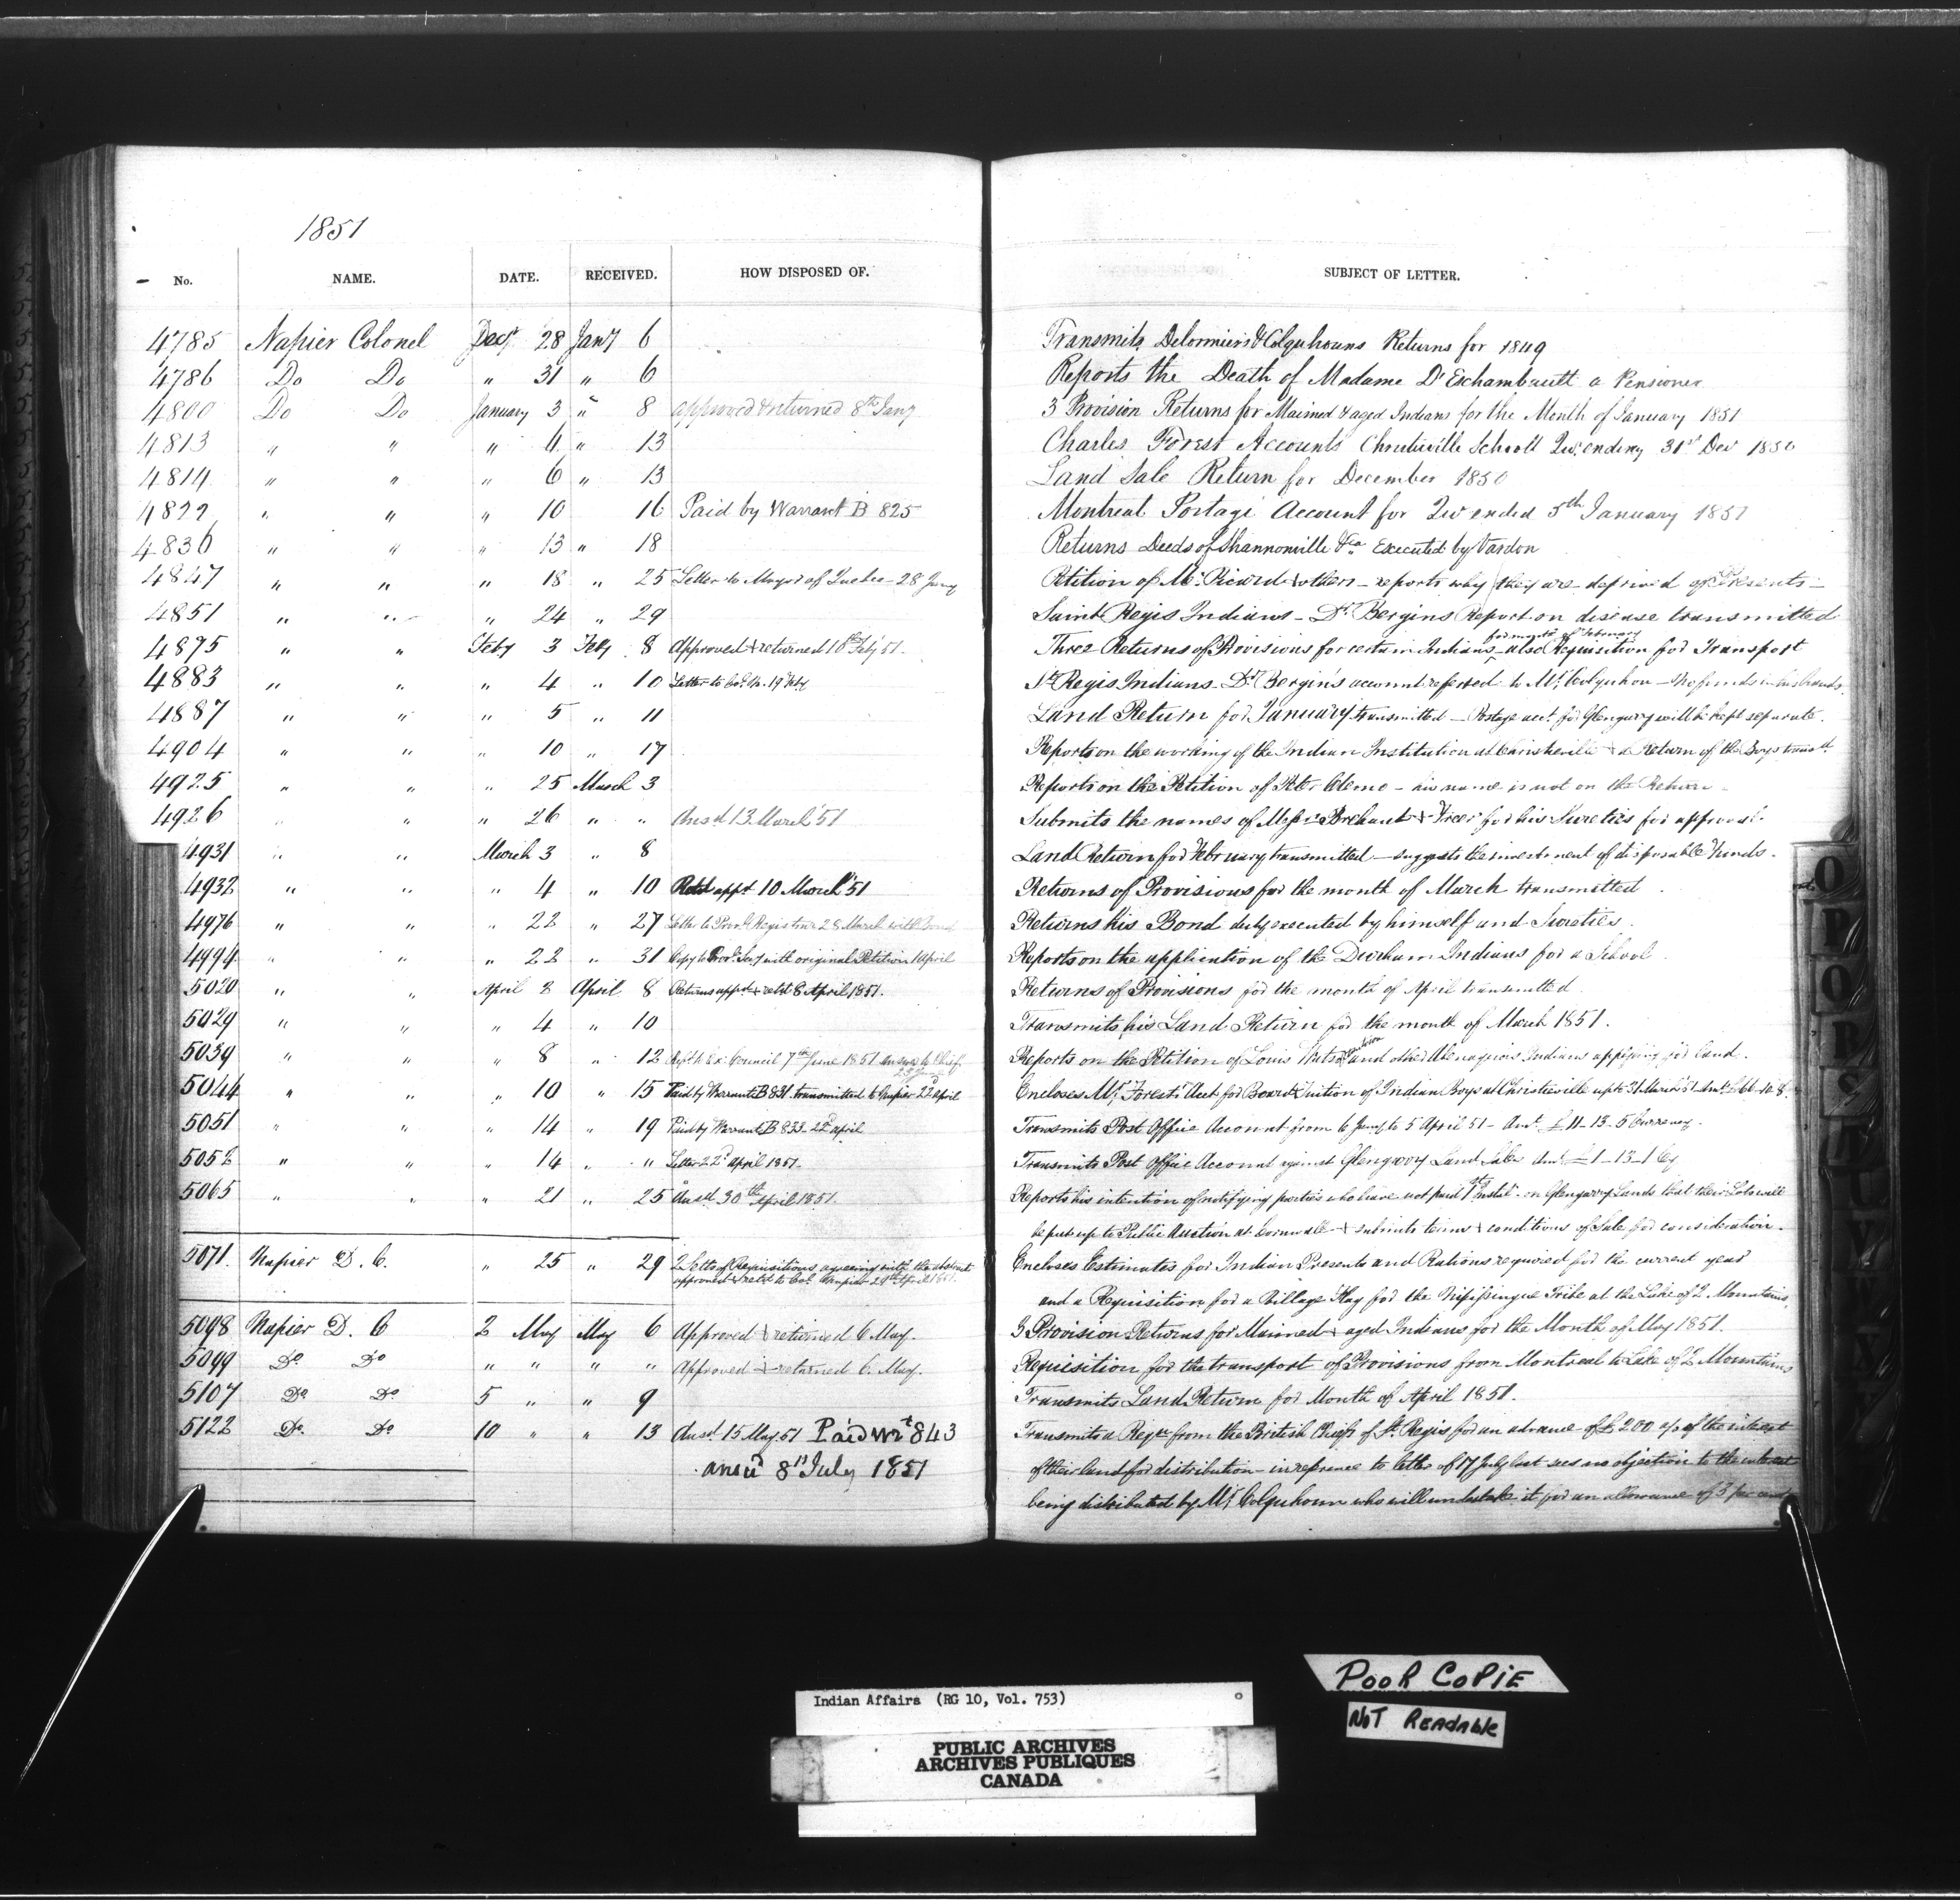 1851
No. NAME. DATE. RECEIVED. HOW DISPOSED OF. SUBJECT OF LETTER.
4785 Napier Colonel Decr 28 Jany 6 Transmits Delormiers & Colquhouns Returns for 1849
4786 Do Do " 31 " 6 Reports the Death of Madame D'Eschambault a Pensioner
4800 Do Do January 3 " 8 approved & returned 8th Jany 3 Provision Returns for Maimed & aged Indians for the Month of January 1851
4813 " " " 4 " 13 Charles Forest Accounts Christieville School Qr. ending 31st Dec 1850
4814 " " " 6 " 13 Land Sale Return for December 1850
4822 " " " 10 16 Paid by Warrant B 825 Montreal Postage Account for Qr ended 5th January 1851
4836 " " " 13 " 18 Returns Deeds of Shannonville &ca Executed by Vardon
4847 " " " 18 " 25 Letter to Mayor of Quebec 28 Jany Petition of Mr. Picard & others - reports why they are deprived of Presents -
4851 " " " 24 " 29 Saint Regis Indians - Dr. Bergins Report on disease transmitted
for month of February
4875 " " Feby 3 Feby 8 Approved & returned 10th Feby 51. Three Returns of Provisions for certain Indians - also Requisition for Transport
4883 " " " 4 " 10 Letter to Col. N. 19 Feby St Regis Indians - Dr Bergin's account referred to Mr. Colquhoun - no funds in his hands
4887 " " " 5 " 11 Land Return for January transmitted - Postage acct. for Glengarry will be kept separate.
4904 " " " 10 " 17 Reports on the working of the Indian Institution at Christieville & a Return of the Boys transtt
4925 " " " 25 March 3 Reports on the Petition of Peter - his name is not on the Return -
4926 " " " 26 " " Ansd 13 March '51 Submits the names of Messrs & for his Sureties for approval.
4931 " " March 3 " 8 Land Return for February transmitted - suggests the investment of disposable Funds.
4932 " " " 4 " 10 Retd appd 10 March '51 Returns of Provisions for the month of March transmitted
4976 " " " 22 " 27 Letter to Provl Registrar 28 March with Bond Returns his Bond duly executed by himself and Sureties.
4994 " " " 22 " 31 Copy to Provl. Secy with original Petition April Reports on the application of the Durham Indians for a School
5020 " " April 2 April 8 Returns appd & retd 8 April 1851. Returns of Provisions for the month of April transmitted
5029 " " " 4 " 10 Transmits his Land Return for the month of March 1851.
5039 " " " 8 " 12 Ex. Council 7th June 1851 to Chief Reports on the Petition of Louis and other Abenaquois Indians applying for land.
5044 " " " 10 " 15 Paid by Warrant B 831. transmitted to Napier 22d April Encloses Mr. Forest's Acct for Board & Tuition of Indian Boys at Christieville up to 31 March 51 Amt. £66-10-8.
5051 " " " 14 " 19 Paid by Warrant B 833 - 22d april Transmits Post Office Account from 6 Jany to 5 April 51 - Amt. £11-13-5 Currency.
5052 " " " 14 " " Letter 22d April 1851. Transmits Post Office Account against Glengarry Land Sales Amt. £1-13-1 Cy
5065 " " " 21 " 25 Ansd. 30th April 1851. Reports his intention of notifying parties who have not paid 1st Instal. on Glengarry Lands that their Lots will
be put up to Public Auction at Cornwall - & submits terms & conditions of Sale for consideration.
5071. Napier D. C. " 25 " 29 2 Setts of Requisitions agreeing with the abstract Encloses Estimates for Indian Presents and Rations required for the current year
approved & retd to Col. Napier 29th April 1851. and a Requisition for a Village Flag for the Nipissingue Tribe at the Lake of 2 Mountains.
5098 Napier D. C 2 May May 6 Approved & returned 6 May. 3 Provision Returns for Maimed & aged Indians for the Month of May 1851.
5099 Do Do " " " " Approved & returned 6. May. Requisition for the transport of Provisions from Montreal to Lake of 2 Mountains
5107 Do Do 5 " " 9 Transmits Land Return for Month of April 1851.
5122 Do. Do 10 " " 13 Ansd. 15 May 51 Paid Wt 843 Transmits a Reqn from the British Chiefs of St. Regis for an advance of £200 a/c of the interest
ansd 8th July 1851 of their land for distribution - in reference to letter of 17 July last sees no objection to the interest
being distributed by Mr. Colquhoun who will undertake it for an allowance of 3 per cent
Indian Affairs (RG 10, Vol. 753)
PUBLIC ARCHIVES
ARCHIVES PUBLIQUES
CANADA
POOR COPIE
NOT READABLE